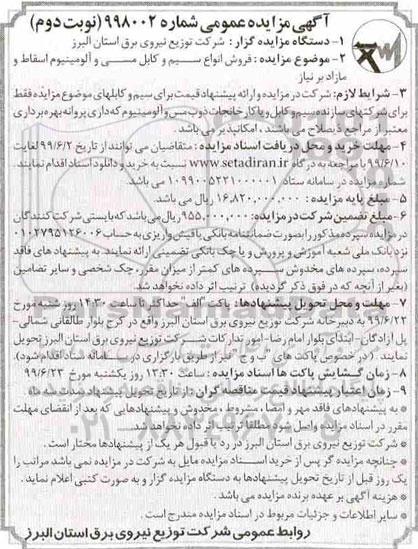 آگهی مزایده عمومی شماره ۹۹۸۰۰۲ (نوبت دوم)
۱- دستگاه مزایده گزار : شرکت توزیع نیروی برق استان البرز
۲- موضوع مزایده : فروش انواع سیم و کابل مسی و آلومینیوم اسقاط و
مازاد بر نیاز
۳- شرایط لازم: شرکت در مزایده و ارائه پیشنهاد قیمت برای سیم و کابلهای موضوع مزایده فقط
برای شرکتهای سازنده سیم و کابل و یا کارخانجات ذوب مس و آلومینیوم که دارای پروانه بهره برداری
معتبر از مراجع ذیصلاح می باشند ، امکانپذیر می باشد.
۴- مهلت خرید و محل دریافت اسناد مزایده : متقاضیان می توانند از تاریخ ۹۹/۶/۲ لغایت
۹۹/۶/۱۰ با مراجعه به درگاه www.setadiran.ir نسبت به خرید و دانلود اسناد اقدام نمایند.
شماره مزایده در سامانه ستاد ۱۰۹۹۰۰۵۳۲۱۰۰۰۰۰۱ می باشد.
۵- مبلغ پایه مزایده : ۱۶,۸۲۰,۰۰۰,۰۰۰ ریال می باشد.
۶- مبلغ تضمین شرکت در مزایده: ۹۵۵,۰۰۰,۰۰۰ ریال می باشد که بایستی شرکت کنندگان
در مزایده سپرده مذکور را بصورت ضمانتنامه بانکی یا فیش واریزی به حساب ۰۱۰۲۷۹۵۱۲۶۰۰۶
نزد بانک ملی شعبه آموزش و پرورش و یا چک بانکی تضمینی ارائه نمایند. به پیشنهاد های فاقد
سپرده، سپرده های مخدوش سپرده های کمتر از میزان مقرر، چک شخصی و سایر تضامین
(بغیر از آنچه که در فوق ذکر گردیده) ترتیب اثر داده نخواهد شد.
۷- مهلت و محل تحویل پیشنهادها: پاکت "الف" حداکثر تا ساعت ۱۴:۳۰ روز شنبه مورخ
۹۹/۶/۲۲ به دبیرخانه شرکت توزیع نیروی برق استان البرز واقع در کرج بلوار طالقانی شمالی-
پل آزادگان- ابتدای بلوار امام رضا- امور تدارکات شرکت توزیع نیروی برق استان البرز تحویل
نمایند. ( در خصوص پاکت های ب و ج نیز از طریق بارگزاری در سامانه ستاد اقدام شود).
۸- زمان گشایش پاکت ها اسناد مزایده : ساعت ۱۳:۳۰ روز یکشنبه مورخ ۹۹/۶/۲۳
۹- زمان اعتبار پیشنهاد قیمت مناقصه گران : از تاریخ تحویل پیشنهاد مدت سه ماه.
* به پیشنهادهای فاقد مهر و امضاء، مشروط، مخدوش و پیشنهادهایی که بعد از انقضای مهلت
مقرر در اسناد مزایده واصل شود مطلقا ترتیب اثر داده نخواهد شد.
* شرکت توزیع نیروی برق استان البرز در رد یا قبول هر یک از پیشنهادها مختار است.
* چنانچه مزایده گر پس از خرید اسناد مزایده مایل به شرکت در مزایده نمی باشد مراتب را
یک روز قبل از تاریخ تحویل پیشنهادها به دستگاه مزایده گزار و به صورت کتبی اعلام نماید.
* هزینه آگهی بر عهده برنده مزایده می باشد.
* سایر اطلاعات و جزئیات مربوط در اسناد مزایده مندرج است.
روابط عمومی شرکت توزیع نیروی برق استان البرز